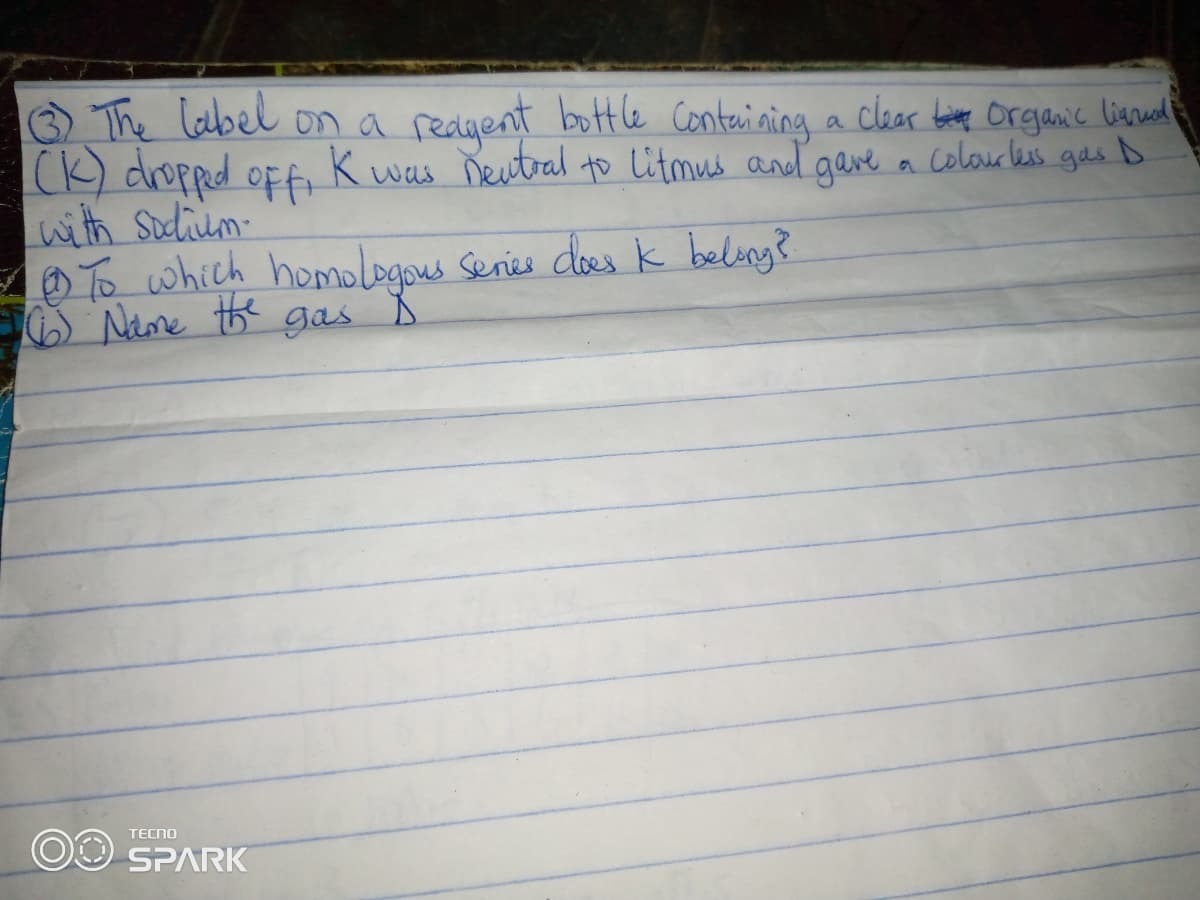 (3) The label on a reagent bottle containing a clear organic liquid
(K) dropped off, K was neutral to litmus and gave a colourless gas D
with sodium.
(a) To which homologous series does K belong?
(b) Name the gas D
TECNO
SPARK